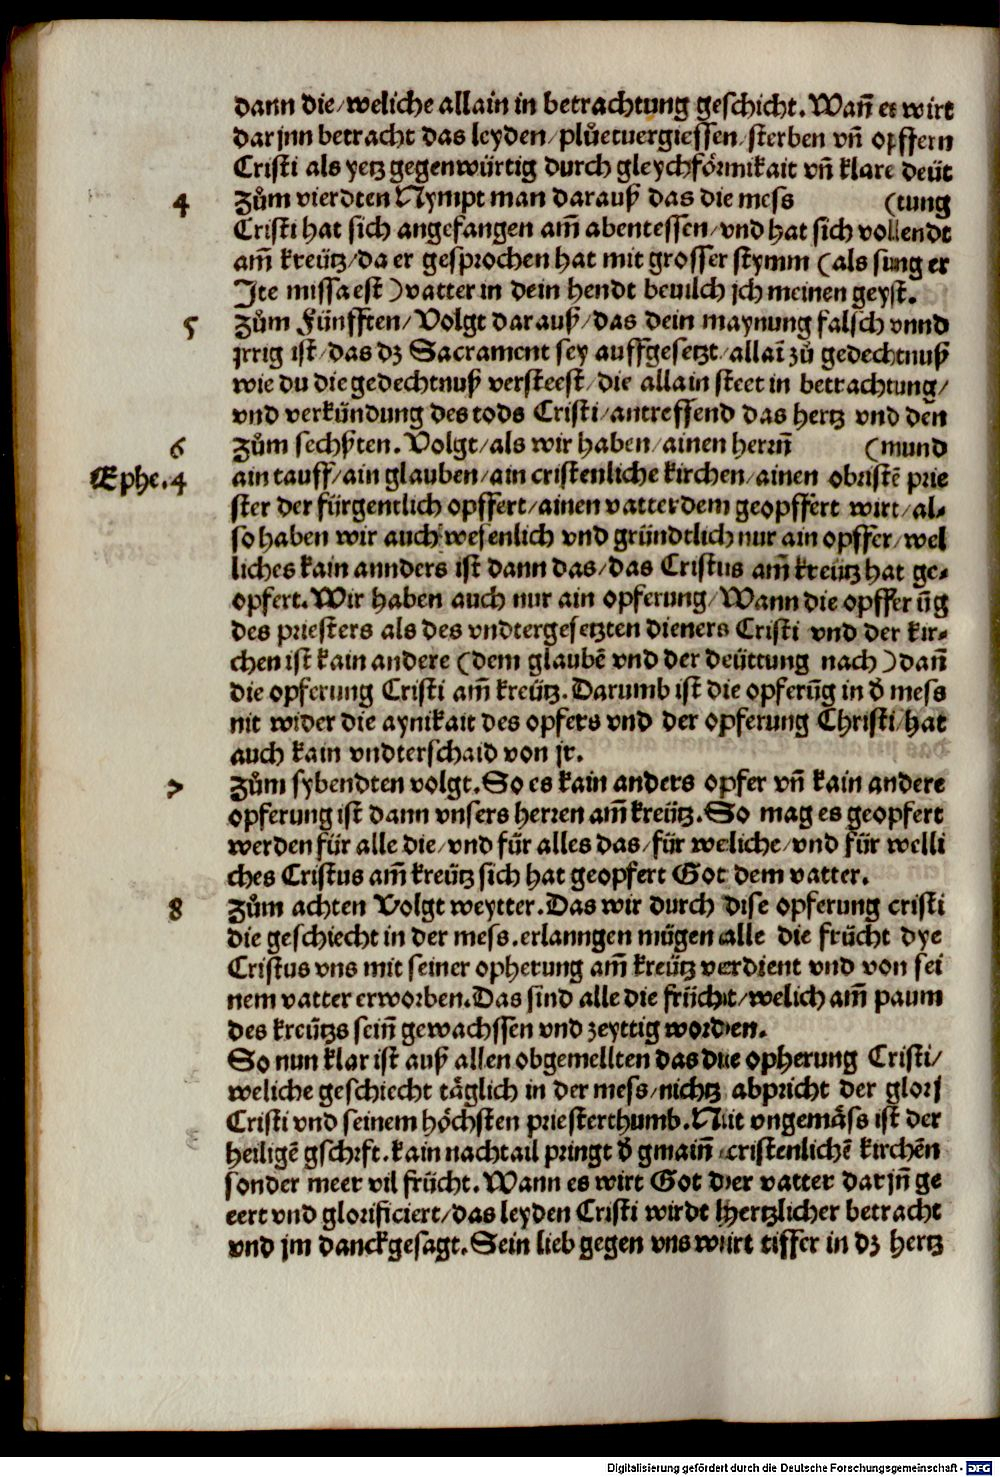 dann die/weliche allain in betrachtung geschicht. Wañ es wirt
darjnn betracht das leyden/plůetuergiessen/sterben vñ opffern
Cristi als yetz gegenwürtig durch gleychförmikait vñ klare deüt
4 Zům vierdten Nympt man darauß das die mess (tung
Cristi hat sich angefangen am̃ abentessen/vnd hat sich vollendt
am̃ kreütz/da er gesprochen hat mit grosser stymm (als sung er
Ite missa est) vatter in dein hendt beuilch jch meinen geyst.
5 Zům Fünfften/Volgt darauß/das dein maynung falsch vnnd
jrrig ist/das dz Sacrament sey auffgesetzt/allaĩ zů gedechtnuß
wie du die gedechtnuß versteest/die allain steet in betrachtung/
vnd verkündung des tods Cristi/antreffend das hertz vnd den
6 Zům sechßten. Volgt/als wir haben/ainen herrñ (mund
Ephe.4 ain tauff/ain glauben/ain cristenliche kirchen/ainen obristẽ prie
ster der fürgentlich opffert/ainen vatter dem geopffert wirt/al-
so haben wir auch wesenlich vnd gründtlich nur ain opffer/wel
liches kain annders ist dann das/das Cristus am̃ kreütz hat ge-
opfert. Wir haben auch nur ain opferung/Wann die opffer ũg
des priesters als des vndtergesetzten dieners Cristi vnd der kir-
chen ist kain andere (dem glaubẽ vnd der deüttung nach) dañ
die opferung Cristi am̃ kreütz. Darumb ist die opferũg in d̕ mess
nit wider die aynikait des opfers vnd der opferung Christi/hat
auch kain vndterschaid von jr.
7 Zům sybendten volgt. So es kain anders opfer vñ kain andere
opferung ist dann vnsers herren am̃ kreütz. So mag es geopfert
werden für alle die/vnd für alles das/für weliche/vnd für welli
ches Cristus am̃ kreütz sich hat geopfert Got dem vatter.
8 Zům achten Volgt weytter. Das wir durch dise opferung cristi
die geschiecht in der mess. erlanngen mügen alle die frücht dye
Cristus vns mit seiner opherung am̃ kreütz verdient vnd von sei
nem vatter erworben. Das sind alle die frücht/welich am̃ paum
des kreützs seiñ gewachssen vnd zeyttig worden.
So nun klar ist auß allen obgemellten das die opherung Cristi/
weliche geschiecht täglich in der mess/nichtz abpricht der glorj
Cristi vnd seinem höchsten priesterthumb. Nit vngemäss ist der
heiligẽ gschrft. kain nachtail pringt d̕ gmaiñ cristenlichẽ kirchẽn
sonder meer vil frücht. Wann es wirt Got der vatter darjñ ge
eert vnd glorificiert/das leyden Cristi wirdt hertzlicher betracht
vnd jm danckgesagt. Sein lieb gegen vns würt tiffer in dz hertz
Digitalisierung gefördert durch die Deutsche Forschungsgemeinschaft - DFG